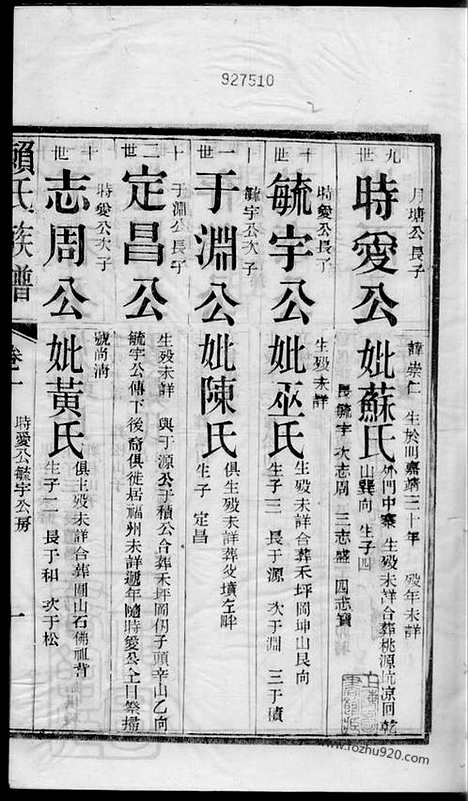 927510
九世
月塘公長子
時愛公
諱崇仁 生於明嘉靖三十年 歿年未詳
妣蘇氏
外門中寨 生歿未詳合葬桃源坑凉回乾
山巽向 生子四
長毓宇 次志周 三志盛 四志寶
十世
時愛公長子
毓宇公
生歿未詳
妣巫氏
生歿未詳合葬禾坪岡坤山艮向
生子三 長于源 次于淵 三于積
十一世
毓宇公次子
于淵公
妣陳氏
俱生歿未詳葬父墳左畔
生子 定昌
十二世
于淵公長子
定昌公
生歿未詳 與于源公于積公合葬禾坪岡仍子頭辛山乙向
毓宇公傳下後裔俱徙居福州未詳遞年隨時愛公全日祭掃
十世
時愛公次子
志周公
號尚淸
妣黃氏
俱生歿未詳合葬圓山石佛祖背
生子二 長于和 次于松
賴氏族譜
卷一
時愛公毓宇公房
一
www.fozhu920.com